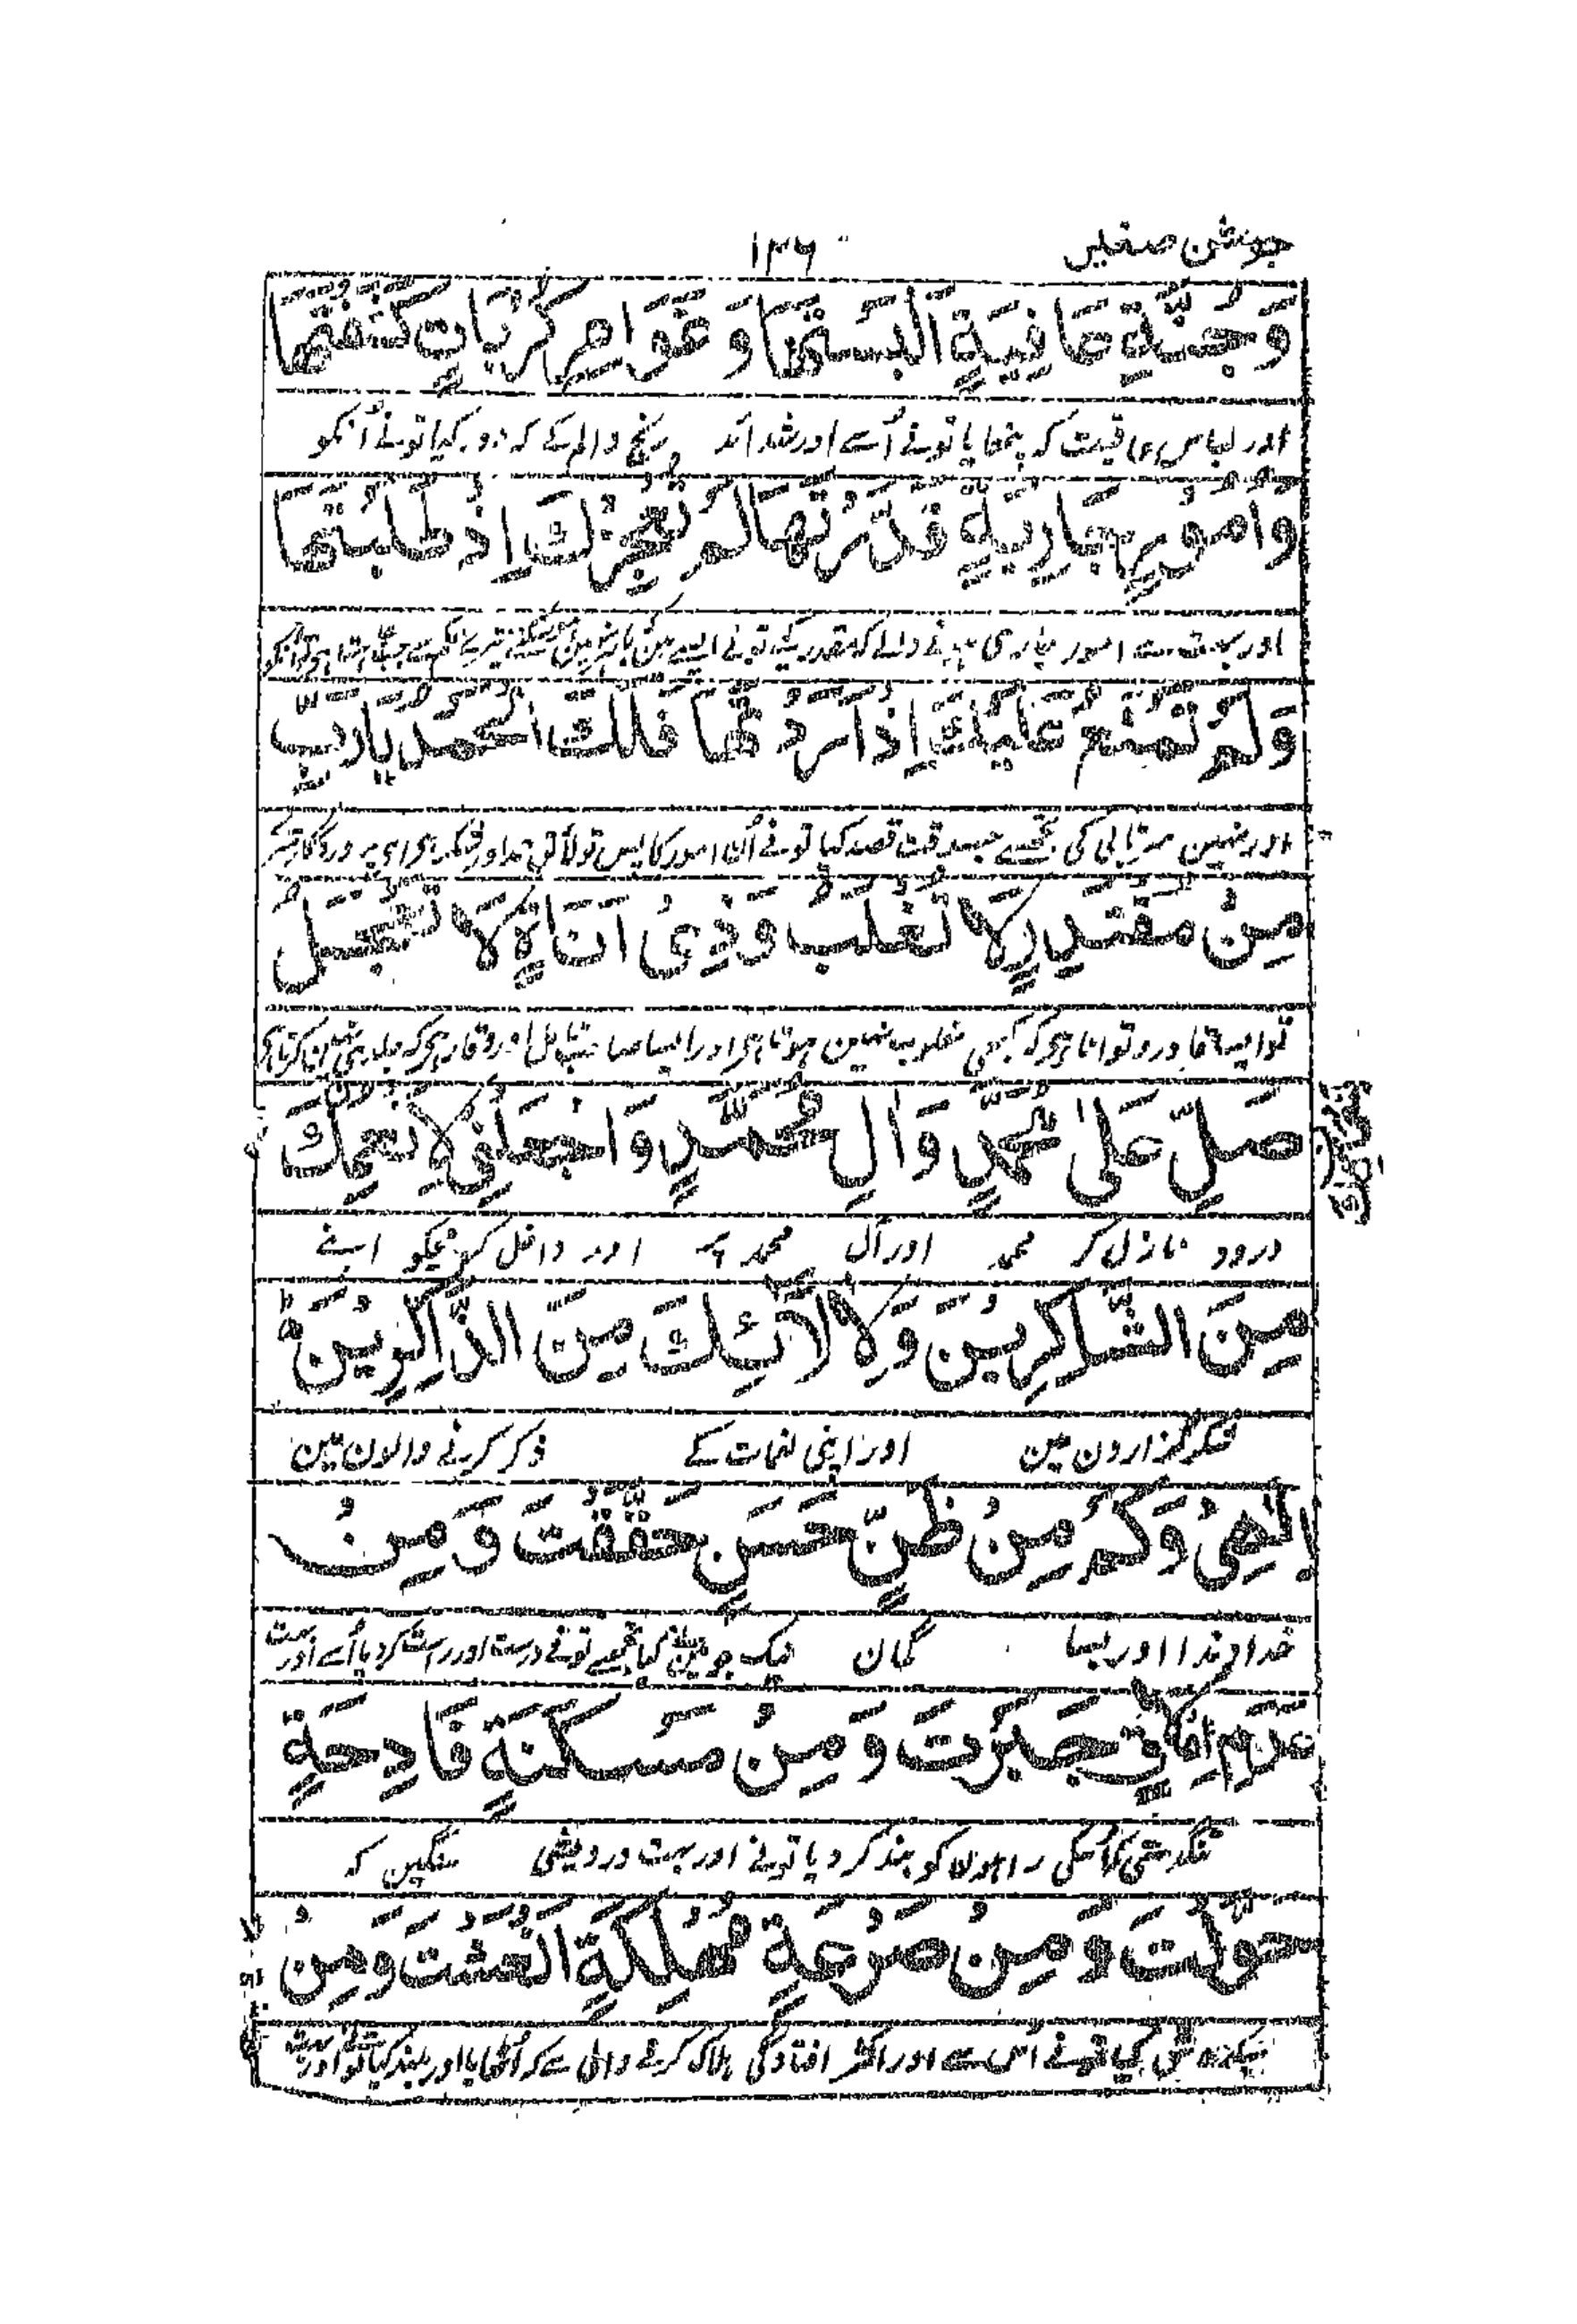 جوشن صغیر
۱۳۶
وَجُنَّةِ عَافِيَةٍ اَلْبَسْتَهَا وَغَوَامِرِ كُرُبَاتٍ كَشَفْتَهَا
اور لباس عافیت کہ پنھایا تونے اُسے اور شدائد رنج والم کے کہ دور کیا تونے اُنکو
وَاُمُوْرٍ جَارِيَةٍ قَدَّرْتَهَا لَمْ تُعْجِزْكَ اِذْ طَلَبْتَهَا
اور بہت سے امور جاری ہونے والے کہ مقدر کیے تونے
وَلَمْ تَمْتَنِعْ عَلَيْكَ اِذْ اَرَدْتَهَا فَلَكَ الْحَمْدُ يَا رَبِّ
اور نہین سرتابی کی تجھسے جسوقت قصد کیا تونے اُن امور کا پس تو لائق حمد اور شکر ہی ای پروردگار
مِنْ مُقْتَدِرٍ لَا تُغْلَبُ وَذِيْ اَنَاةٍ لَا تَعْجَلُ
تو ایسا قادر و توانا ہی کہ کبھی مغلوب نہین ہوتا ہی اور ایسا صاحب تامل اور وقار ہی کہ جلدی نہین کرتا ہی
صَلِّ عَلٰى مُحَمَّدٍ وَاٰلِ مُحَمَّدٍ وَاجْعَلْنِيْ لِاَنْعُمِكَ
درود نازل کر محمد اور آل محمد پر اور داخل کر مجکو اپنے
مِنَ الشَّاكِرِيْنَ وَلِاٰلَائِكَ مِنَ الذَّاكِرِيْنَ
شکر گزارون مین اور اپنی نعمات کے ذکر کرنے والون مین
اِلٰهِيْ وَكَمْ مِنْ ظَنٍّ حَسَنٍ حَقَّقْتَ وَمِنْ
خداوندا اور بسا گمان نیک جو مینے کیا تجھسے تونے درست اور راست کردیا اُسے اور بہت
عَدَمِ اِمْلَاقٍ جَبَرْتَ وَمِنْ مَسْكَنَةٍ فَادِحَةٍ
تنگدستی کہ اُسکی راہونکو بند کر دیا تونے اور بہت درویشی سنگین کہ
حَوَّلْتَ وَمِنْ صَرْعَةٍ مُهْلِكَةٍ اَنْعَشْتَ وَمِنْ
کیا تونے اُس سے اور اکثر افتادگی ہلاک کرنے والی سے کہ اُٹھایا اور بلند کیا تونے اور بہت